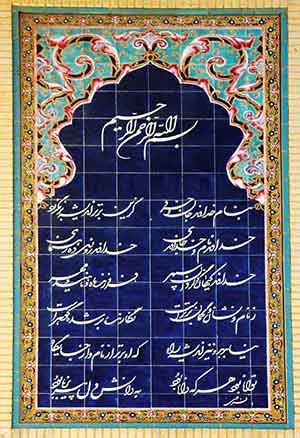 بسم الله الرحمن الرحیم
بنام خداوند جان و خرد کزین برتر اندیشه برنگذرد
خداوند نام و خداوند جای خداوند روزی ده رهنمای
خداوند کیهان و گردان سپهر فروزنده ماه و ناهید و مهر
ز نام و نشان و گمان برترست نگارنده بر شده گوهرست
نیابد بدو نیز اندیشه راه که او برتر از نام و از جایگاه
توانا بود هر که دانا بود به دانش دل پیر برنا بود